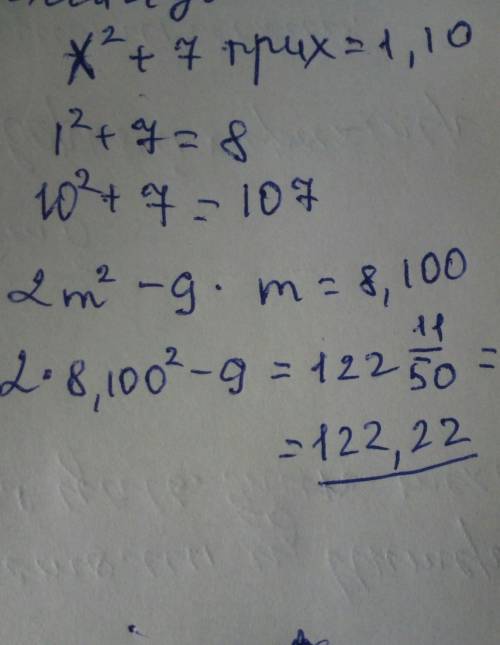 x² + 7 при x = 1, 10
1² + 7 = 8
10² + 7 = 107
2m² - 9 · m = 8,100
2 · 8,100² - 9 = 122 11/50 =
= 122,22